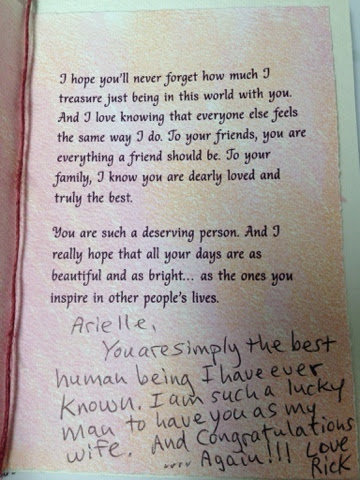 I hope you'll never forget how much I
treasure just being in this world with you.
And I love knowing that everyone else feels
the same way I do. To your friends, you are
everything a friend should be. To your
family, I know you are dearly loved and
truly the best.
You are such a deserving person. And I
really hope that all your days are as
beautiful and as bright... as the ones you
inspire in other people's lives.
Arielle,
You are simply the best
human being I have ever
known. I am such a lucky
man to have you as my
wife. And Congratulations
.... Again!!! Love
Rick